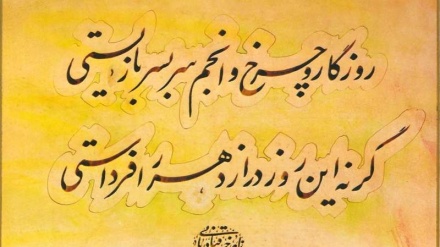 روزگار و چرخ و انجم سر بسر بازیستی
گرنه این روز دراز دهر را فرداستی